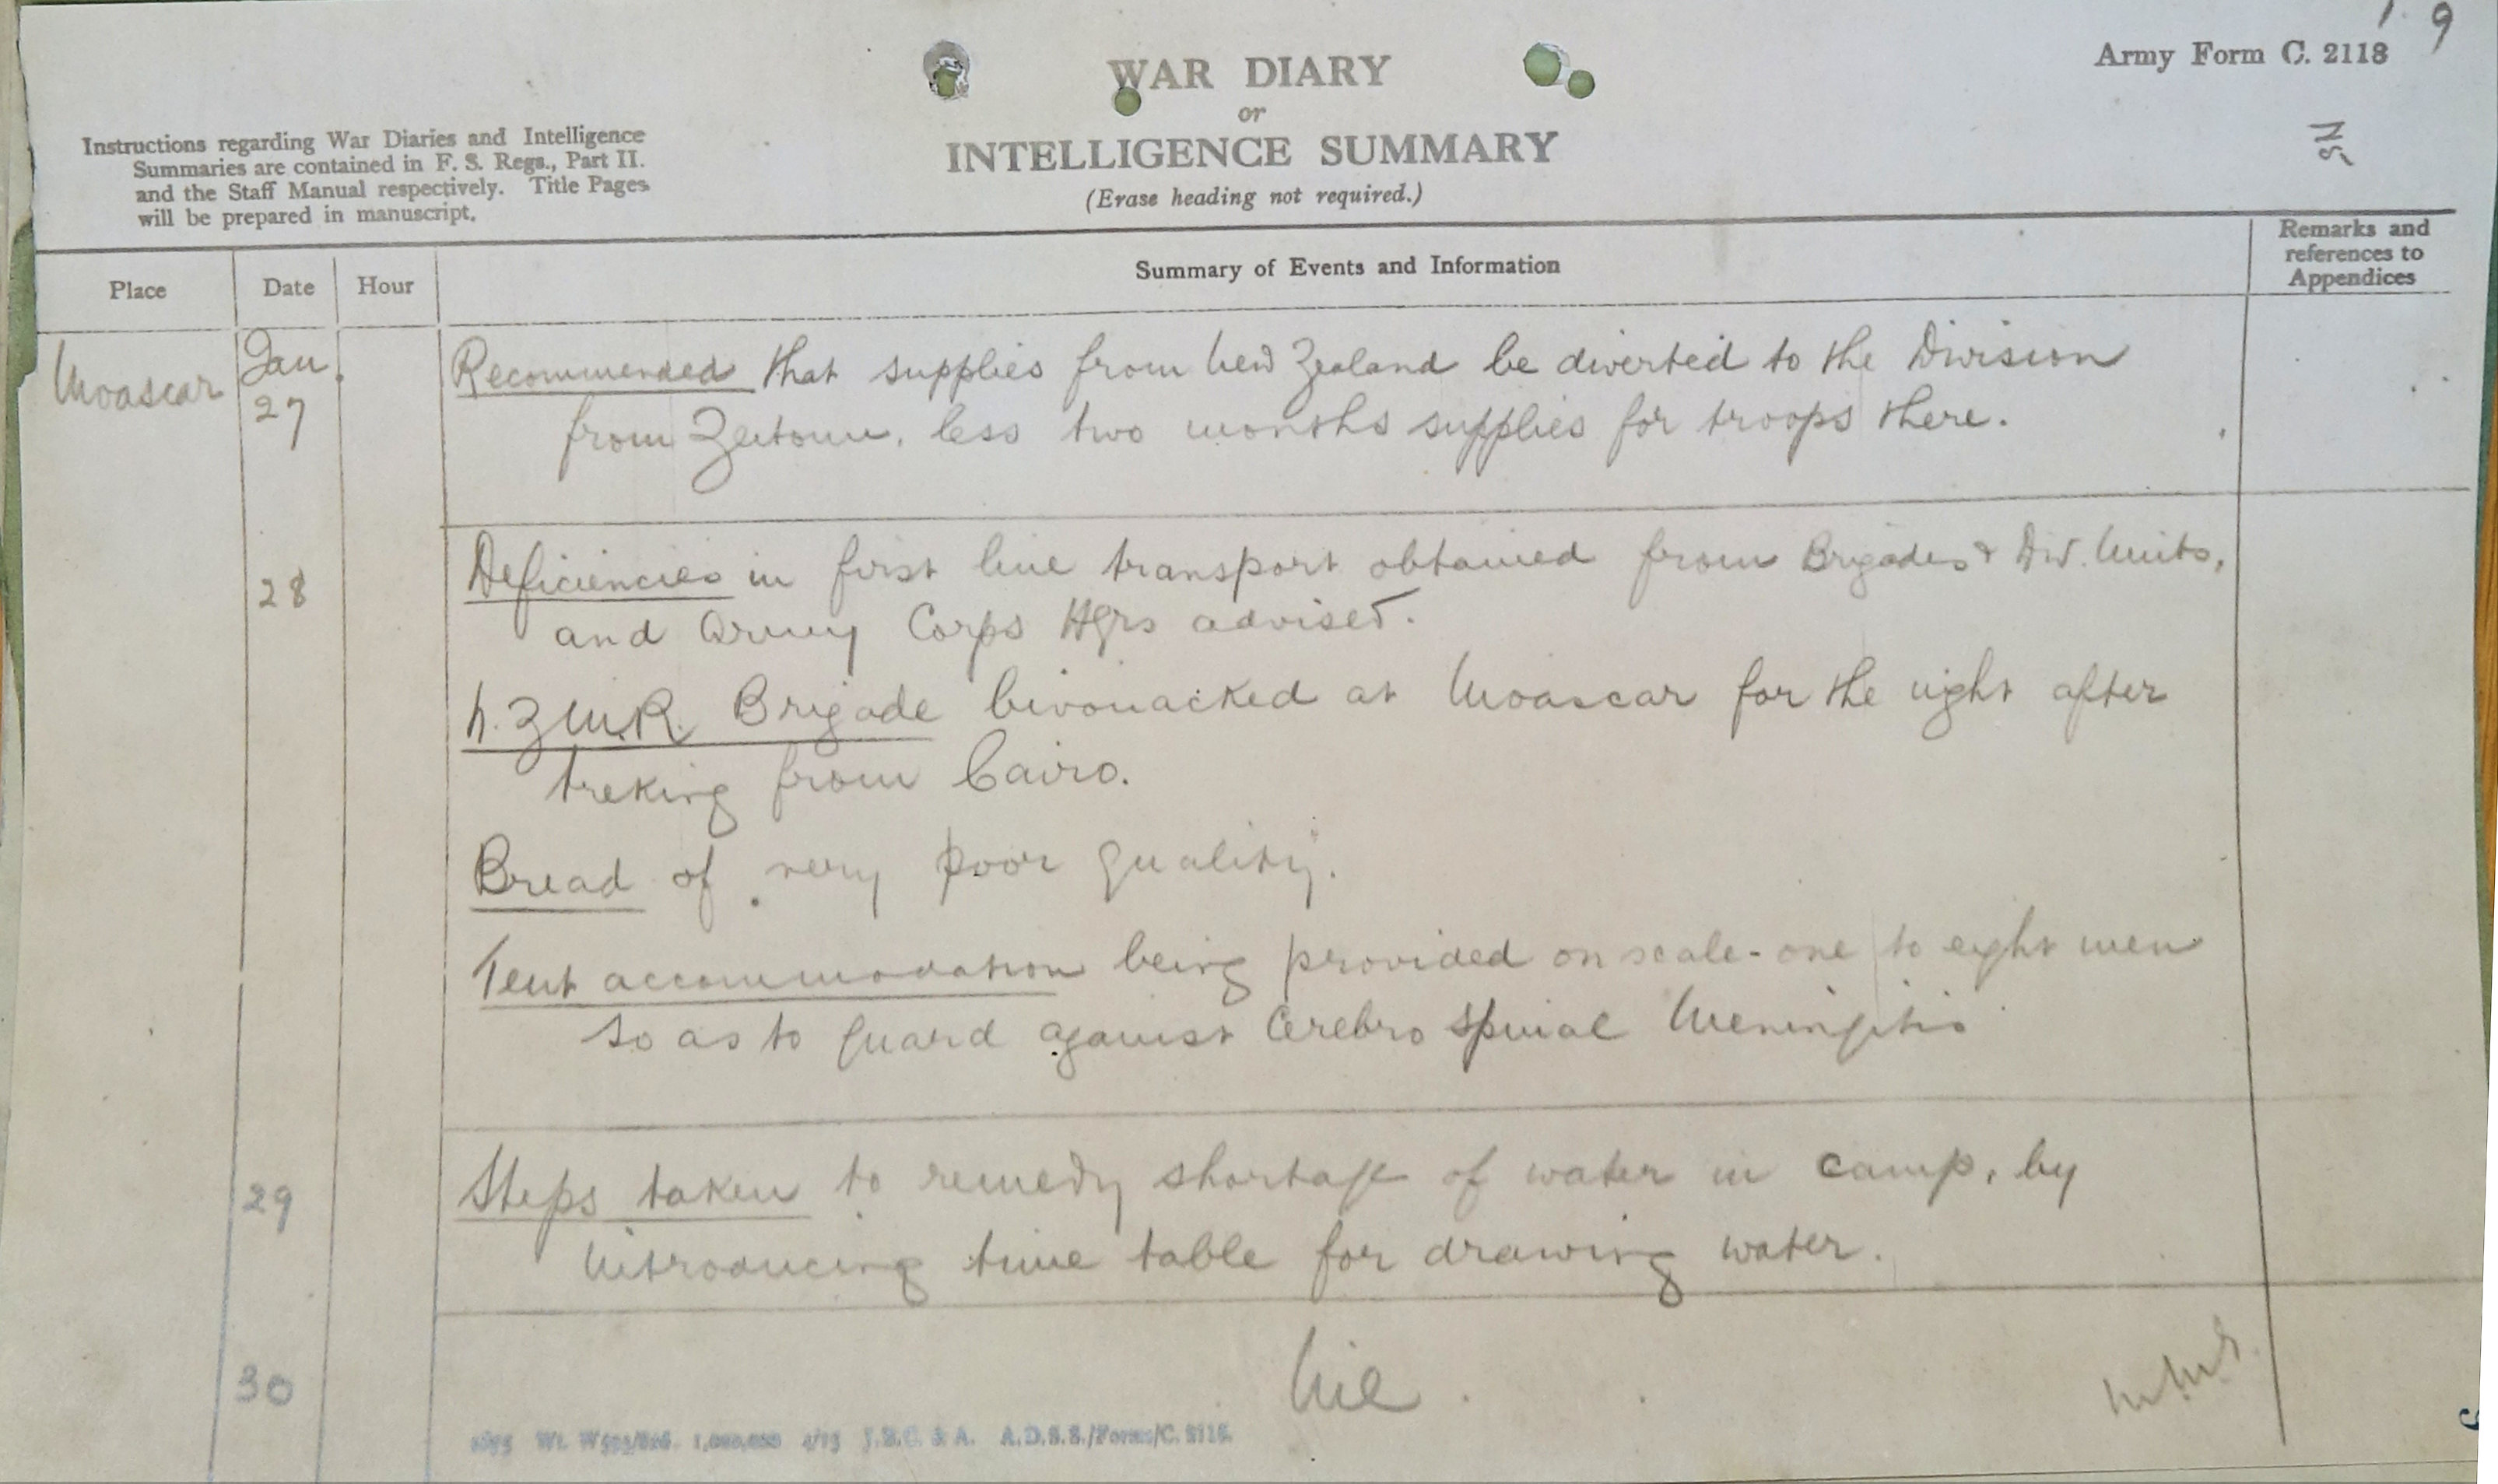 9
Army Form C. 2118
WAR DIARY
or
INTELLIGENCE SUMMARY
(Erase heading not required.)
Instructions regarding War Diaries and Intelligence
Summaries are contained in F. S. Regs., Part II.
and the Staff Manual respectively. Title Pages
will be prepared in manuscript.
Place Date Hour Summary of Events and Information Remarks and
references to
Appendices
Moascar Jan. Recommended that supplies from New Zealand be diverted to the Division
27 from Zeitoun, less two months supplies for troops there.
28 Deficiencies in first line transport obtained from Brigades & Div. Units,
and Army Corps Hqrs advised.
N.Z.M.R. Brigade bivouacked at Moascar for the night after
treking from Cairo.
Bread of very poor quality.
Tent accommodation being provided on scale - one to eight men
so as to guard against Cerebro Spinal Meningitis
29 Steps taken to remedy shortage of water in camp, by
introducing time table for drawing water.
30 Nil.
1,000,000 4/15 J.B.C. & A. A.D.S.S./Forms/C. 2118.